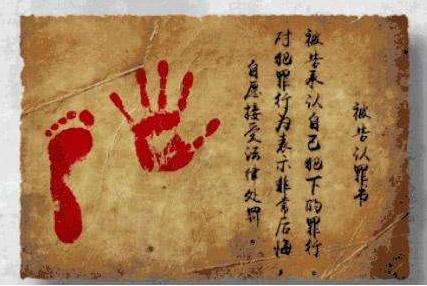 被告认罪书
被告承认自己犯下的罪行。
对犯罪行为表示非常后悔，
自愿接受法律处罚。